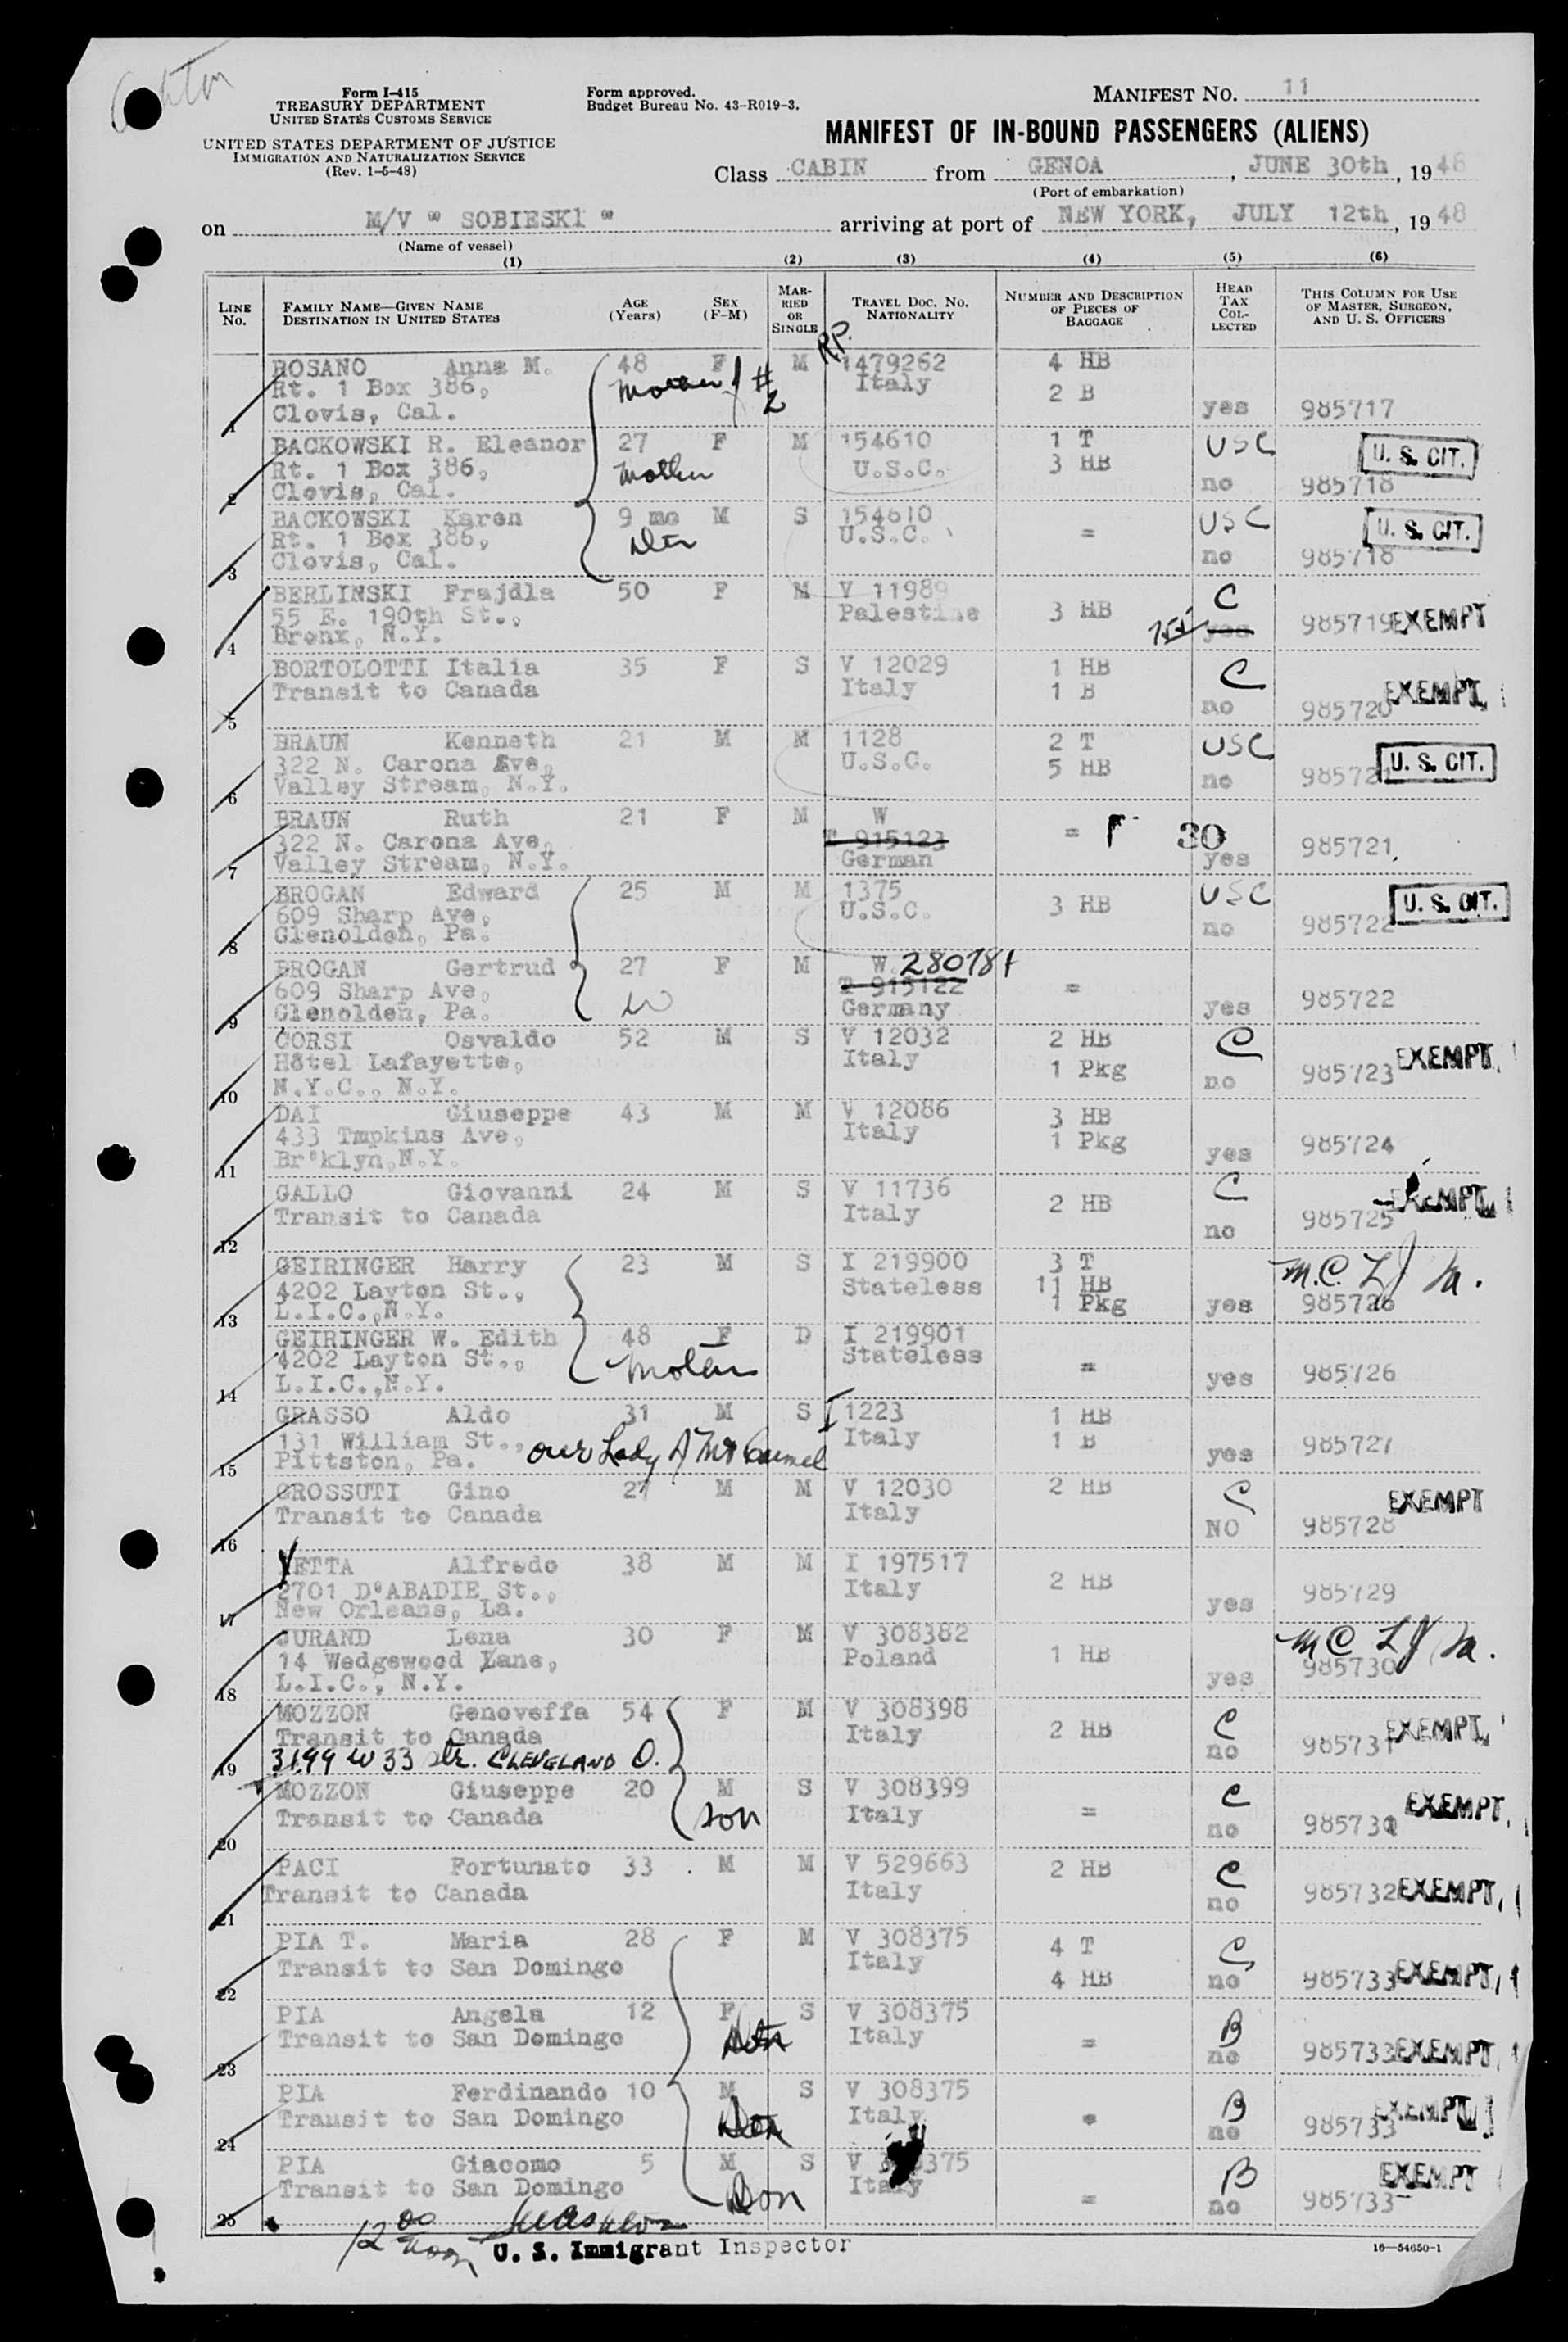 Form I-415
TREASURY DEPARTMENT
UNITED STATES CUSTOMS SERVICE
UNITED STATES DEPARTMENT OF JUSTICE
IMMIGRATION AND NATURALIZATION SERVICE
(Rev. 1-5-48)
Form approved.
Budget Bureau No. 43-R019-3.
MANIFEST NO. 11
MANIFEST OF IN-BOUND PASSENGERS (ALIENS)
Class CABIN from GENOA, JUNE 30th, 1948
(Port of embarkation)
on M/V " SOBIESKI " arriving at port of NEW YORK, JULY 12th, 1948
(Name of vessel)
(1) (2) (3) (4) (5) (6)
LINE No. FAMILY NAME—GIVEN NAME DESTINATION IN UNITED STATES AGE (Years) SEX (F-M) MARRIED OR SINGLE TRAVEL DOC. No. NATIONALITY NUMBER AND DESCRIPTION OF PIECES OF BAGGAGE HEAD TAX COLLECTED THIS COLUMN FOR USE OF MASTER, SURGEON, AND U. S. OFFICERS
ROSANO Anna M. 48 F M RP. 1479262 4 HB
Rt. 1 Box 386, Mother of #2 Italy 2 B
1 Clovis, Cal. yes 985717
BACKOWSKI R. Eleanor 27 F M 154610 1 T USC U. S. CIT.
Rt. 1 Box 386, Mother U.S.C. 3 HB
2 Clovis, Cal. no 985718
BACKOWSKI Karen 9 mo M S 154610 USC U. S. CIT.
Rt. 1 Box 386, dtr U.S.C. =
3 Clovis, Cal. no 985718
BERLINSKI Frajdla 50 F M V 11989 C
55 E. 190th St., Palestine 3 HB 985719 EXEMPT
4 Bronx, N.Y. yes
BORTOLOTTI Italia 35 F S V 12029 1 HB C
Transit to Canada Italy 1 B EXEMPT
5 no 985720
BRAUN Kenneth 21 M M 1128 2 T USC
322 N. Carona Ave, U.S.C. 5 HB U. S. CIT.
6 Valley Stream, N.Y. no 98572
BRAUN Ruth 21 F M W
322 N. Carona Ave, T 915123 = 30
7 Valley Stream, N.Y. German yes 985721
BROGAN Edward 25 M M 1375 USC
609 Sharp Ave, U.S.C. 3 HB U. S. CIT.
8 Glenolden, Pa. no 985722
BROGAN Gertrud 27 F M W. 
609 Sharp Ave, w T 915122 =
9 Glenolden, Pa. Germany yes 985722
CORSI Osvaldo 52 M S V 12032 2 HB C
Hôtel Lafayette, Italy 1 Pkg EXEMPT
10 N.Y.C., N.Y. no 985723
DAI Giuseppe 43 M M V 12086 3 HB
433 Tmpkins Ave, Italy 1 Pkg
11 Br'klyn,N.Y. yes 985724
GALLO Giovanni 24 M S V 11736 C
Transit to Canada Italy 2 HB EXEMPT
12 no 985725
GEIRINGER Harry 23 M S I 219900 3 T
4202 Layton St., Stateless 11 HB
13 L.I.C.,N.Y. 1 Pkg yes 985726
GEIRINGER W. Edith 48 F D I 219901
4202 Layton St., Mother Stateless =
14 L.I.C.,N.Y. yes 985726
GRASSO Aldo 31 M S I 1223 1 HB
131 William St., our Lady of Mt Carmel Italy 1 B
15 Pittston, Pa. yes 985727
GROSSUTI Gino 27 M M V 12030 2 HB C
Transit to Canada Italy EXEMPT
16 NO 985728
YETTA Alfredo 38 M M I 197517
2701 D'ABADIE St., Italy 2 HB
17 New Orleans, La. yes 985729
JURAND Lena 30 F M V 308382
14 Wedgewood Lane, Poland 1 HB
18 L.I.C., N.Y. yes 985730
MOZZON Genoveffa 54 F M V 308398 C
Transit to Canada Italy 2 HB EXEMPT
19 3199 W 33 str. CLEVELAND O. no 985731
MOZZON Giuseppe 20 M S V 308399 C
Transit to Canada son Italy = EXEMPT
20 no 985731
PACI Fortunato 33 M M V 529663 2 HB C
Transit to Canada Italy 985732 EXEMPT
21 no
PIA T. Maria 28 F M V 308375 4 T C
Transit to San Domingo Italy
22 4 HB no 985733 EXEMPT
PIA Angela 12 F S V 308375 B
Transit to San Domingo Dtr Italy =
23 no 985733 EXEMPT
PIA Ferdinando 10 M S V 308375 B
Transit to San Domingo Italy EXEMPT
24 no 985733
PIA Giacomo 5 M S V 375 B
Transit to San Domingo Son Italy = EXEMPT
25 no 985733
12 00 noon
U. S. Immigrant Inspector
16—54650-1